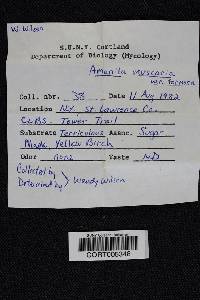 W. Wilson
S.U.N.Y. Cortland
Department of Biology (Mycology)
Amanita muscaria
var. formosa
Coll. nbr. 38 Date 11 Aug 1982
Location N.Y. St Lawrence Co.
CLBS. Tower Trail
Substrate Terricolous Assoc. Sugar
Maple Yellow Birch
Odor none Taste ND
Collected by
Determined by } Wendy Wilson
CORT006348